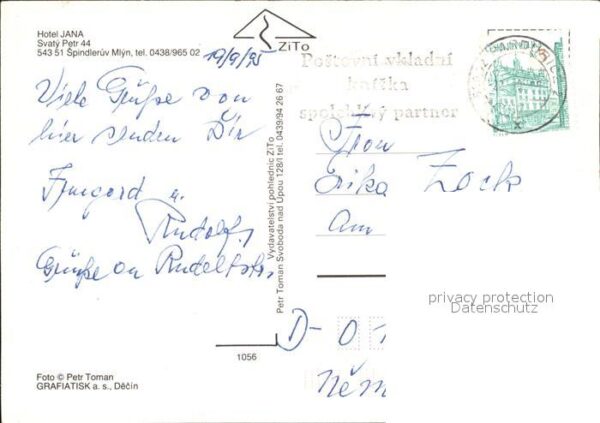 Hotel JANA
Svatý Petr 44
543 51 Špindlerův Mlýn, tel. 0438/965 02
19/9/95
ZiTo
Poštovní vkladní
knížka
spolehlivý partner
Viele Grüße von
hier senden Dir
Irmgard u.
Rudolf,
Grüße an
Vydavatelství pohlednic ZiTo
Petr Toman Svoboda nad Úpou 128/I tel. 0439/94 26 67
Frau
Erika Zock
Am
D-01
Něm
privacy protection
Datenschutz
1056
Foto © Petr Toman
GRAFIATISK a. s., Děčín